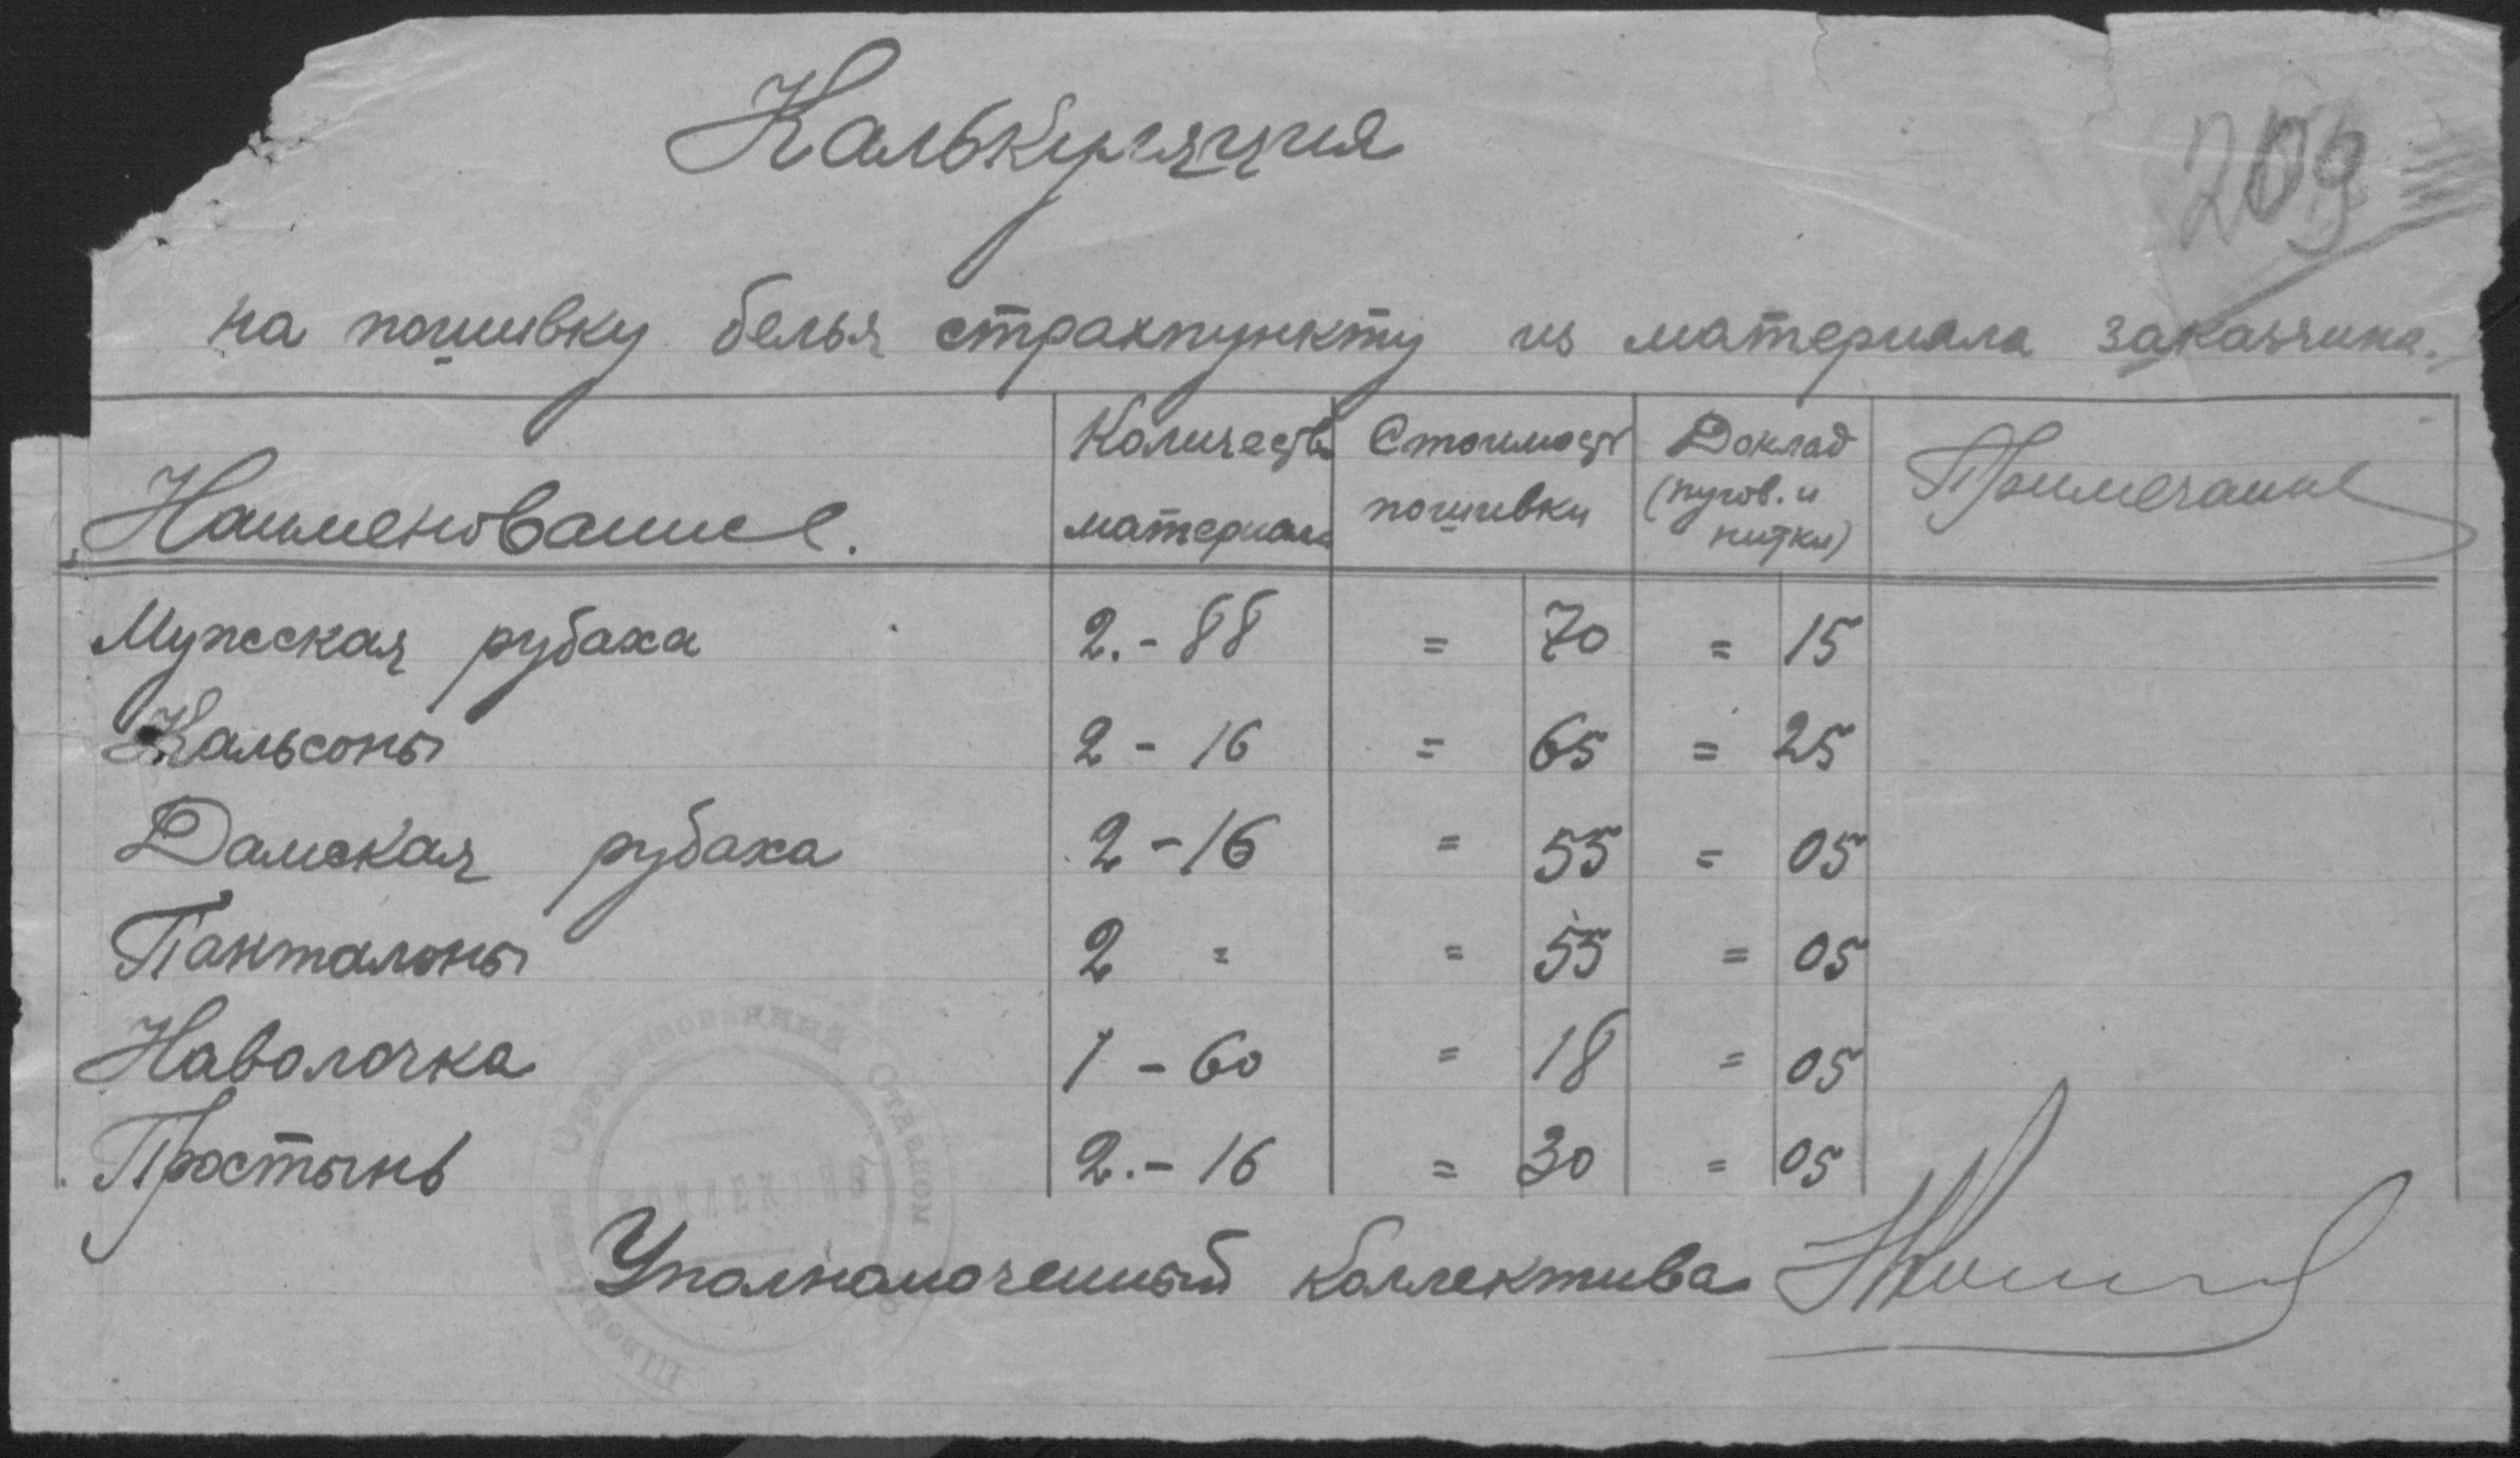 209
Калькуляция
на пошивку белья страхпункту из материала заказчика.
Наименование. Количеств. материала Стоимост пошивки Доклад (пугов. и нитки) Примечание
Мужская рубаха 2.-88 = 70 = 15
Кальсоны 2 - 16 = 65 = 25
Дамская рубаха 2 - 16 = 55 = 05
Панталоны 2 = = 55 = 05
Наволочка 1 - 60 = 18 = 05
Простынь 2.- 16 = 30 = 05
Уполномоченный коллектива
Швейный Организованный Отделом
КОЛЛЕКТИВ